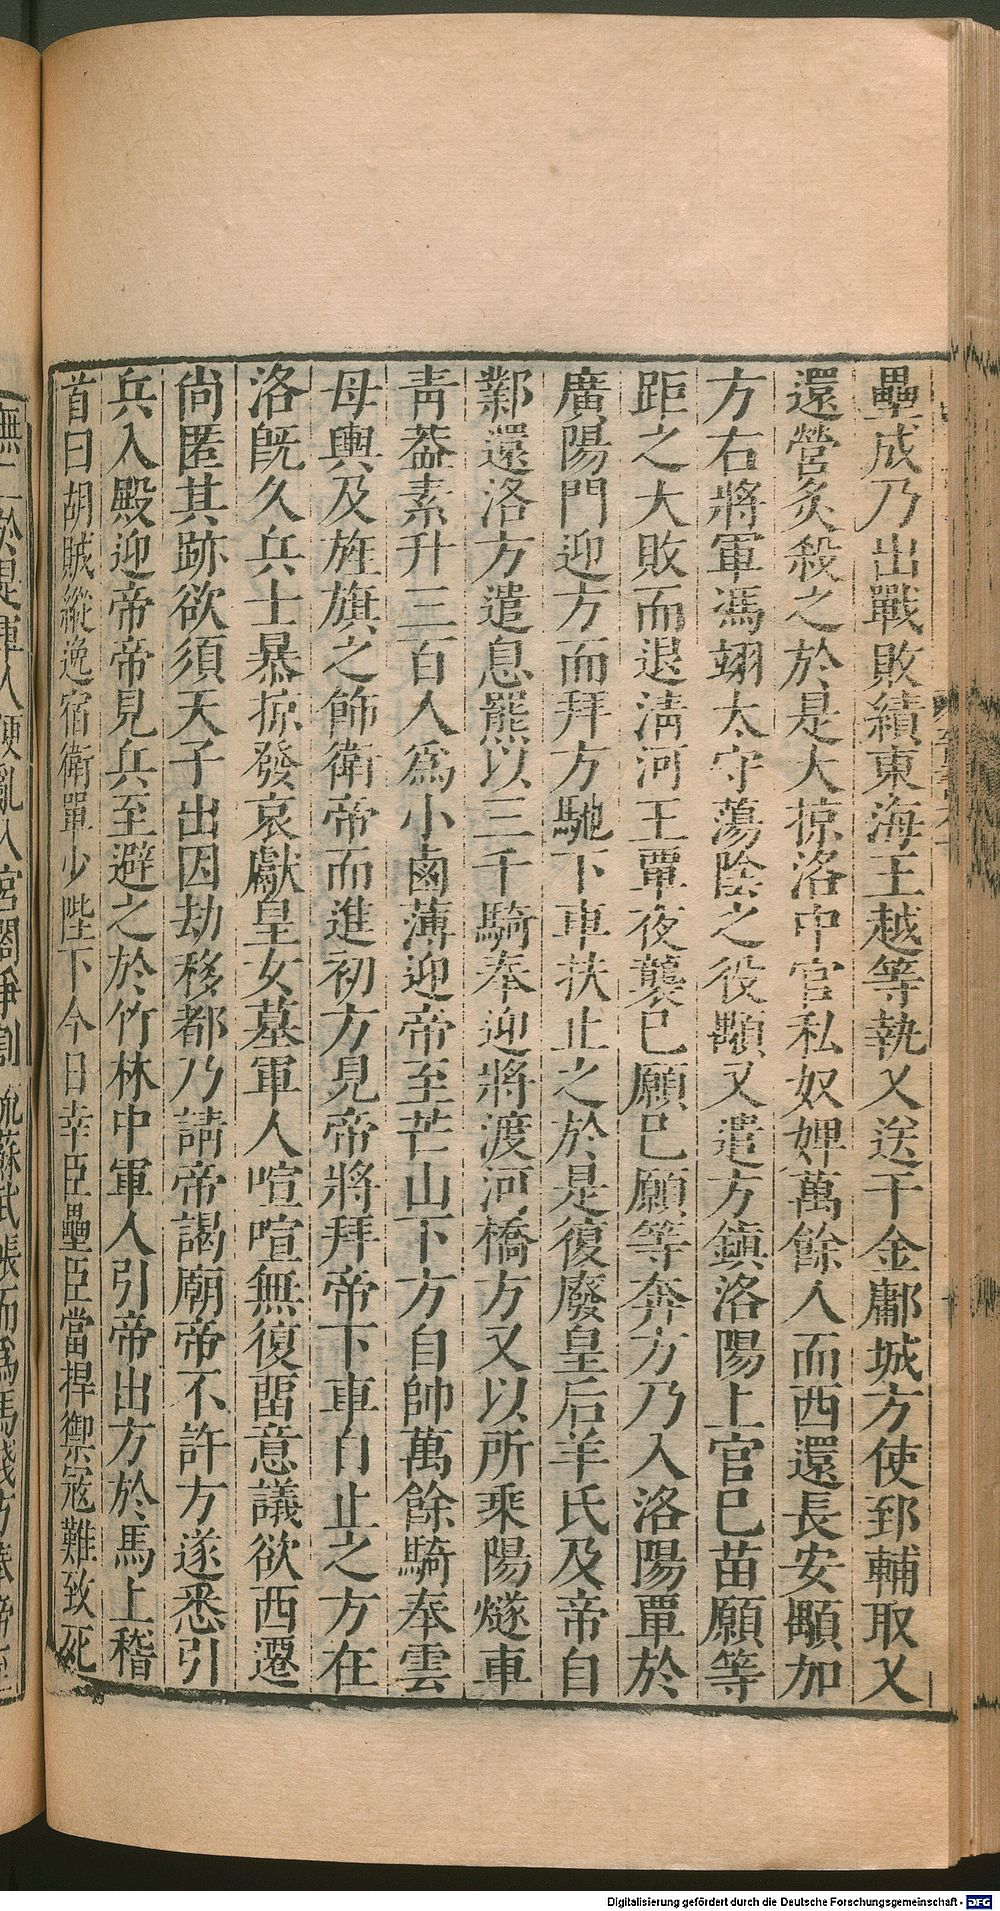 壘成乃出戰敗績東海王越等執乂送于金鄘城方使郅輔取乂
還營炙殺之於是大掠洛中官私奴婢萬餘人而西還長安顒加
方右將軍馮翊太守蕩陰之役顒又遣方鎮洛陽上官巳苗願等
距之大敗而退淸河王覃夜襲巳願巳願等奔方乃入洛陽覃於
廣陽門迎方而拜方馳下車扶止之於是復廢皇后羊氏及帝自
鄴還洛方遣息羆以三千騎奉迎將渡河橋方又以所乘陽燧車
靑葢素升三百人爲小鹵薄迎帝至芒山下方自帥萬餘騎奉雲
母輿及旌旗之飾衛帝而進初方見帝將拜帝下車自止之方在
洛旣久兵士暴掠發哀獻皇女墓軍人喧喧無復畱意議欲西遷
尙匿其跡欲須天子出因劫移都乃請帝謁廟帝不許方遂悉引
兵入殿迎帝帝見兵至避之於竹林中軍人引帝出方於馬上稽
首曰胡賊縱逸宿衛單少陛下今日幸臣壘臣當捍禦寇難致死
軍人便亂入宮閤爭割流蘇武帳而爲馬
Digitalisierung gefördert durch die Deutsche Forschungsgemeinschaft - DFG